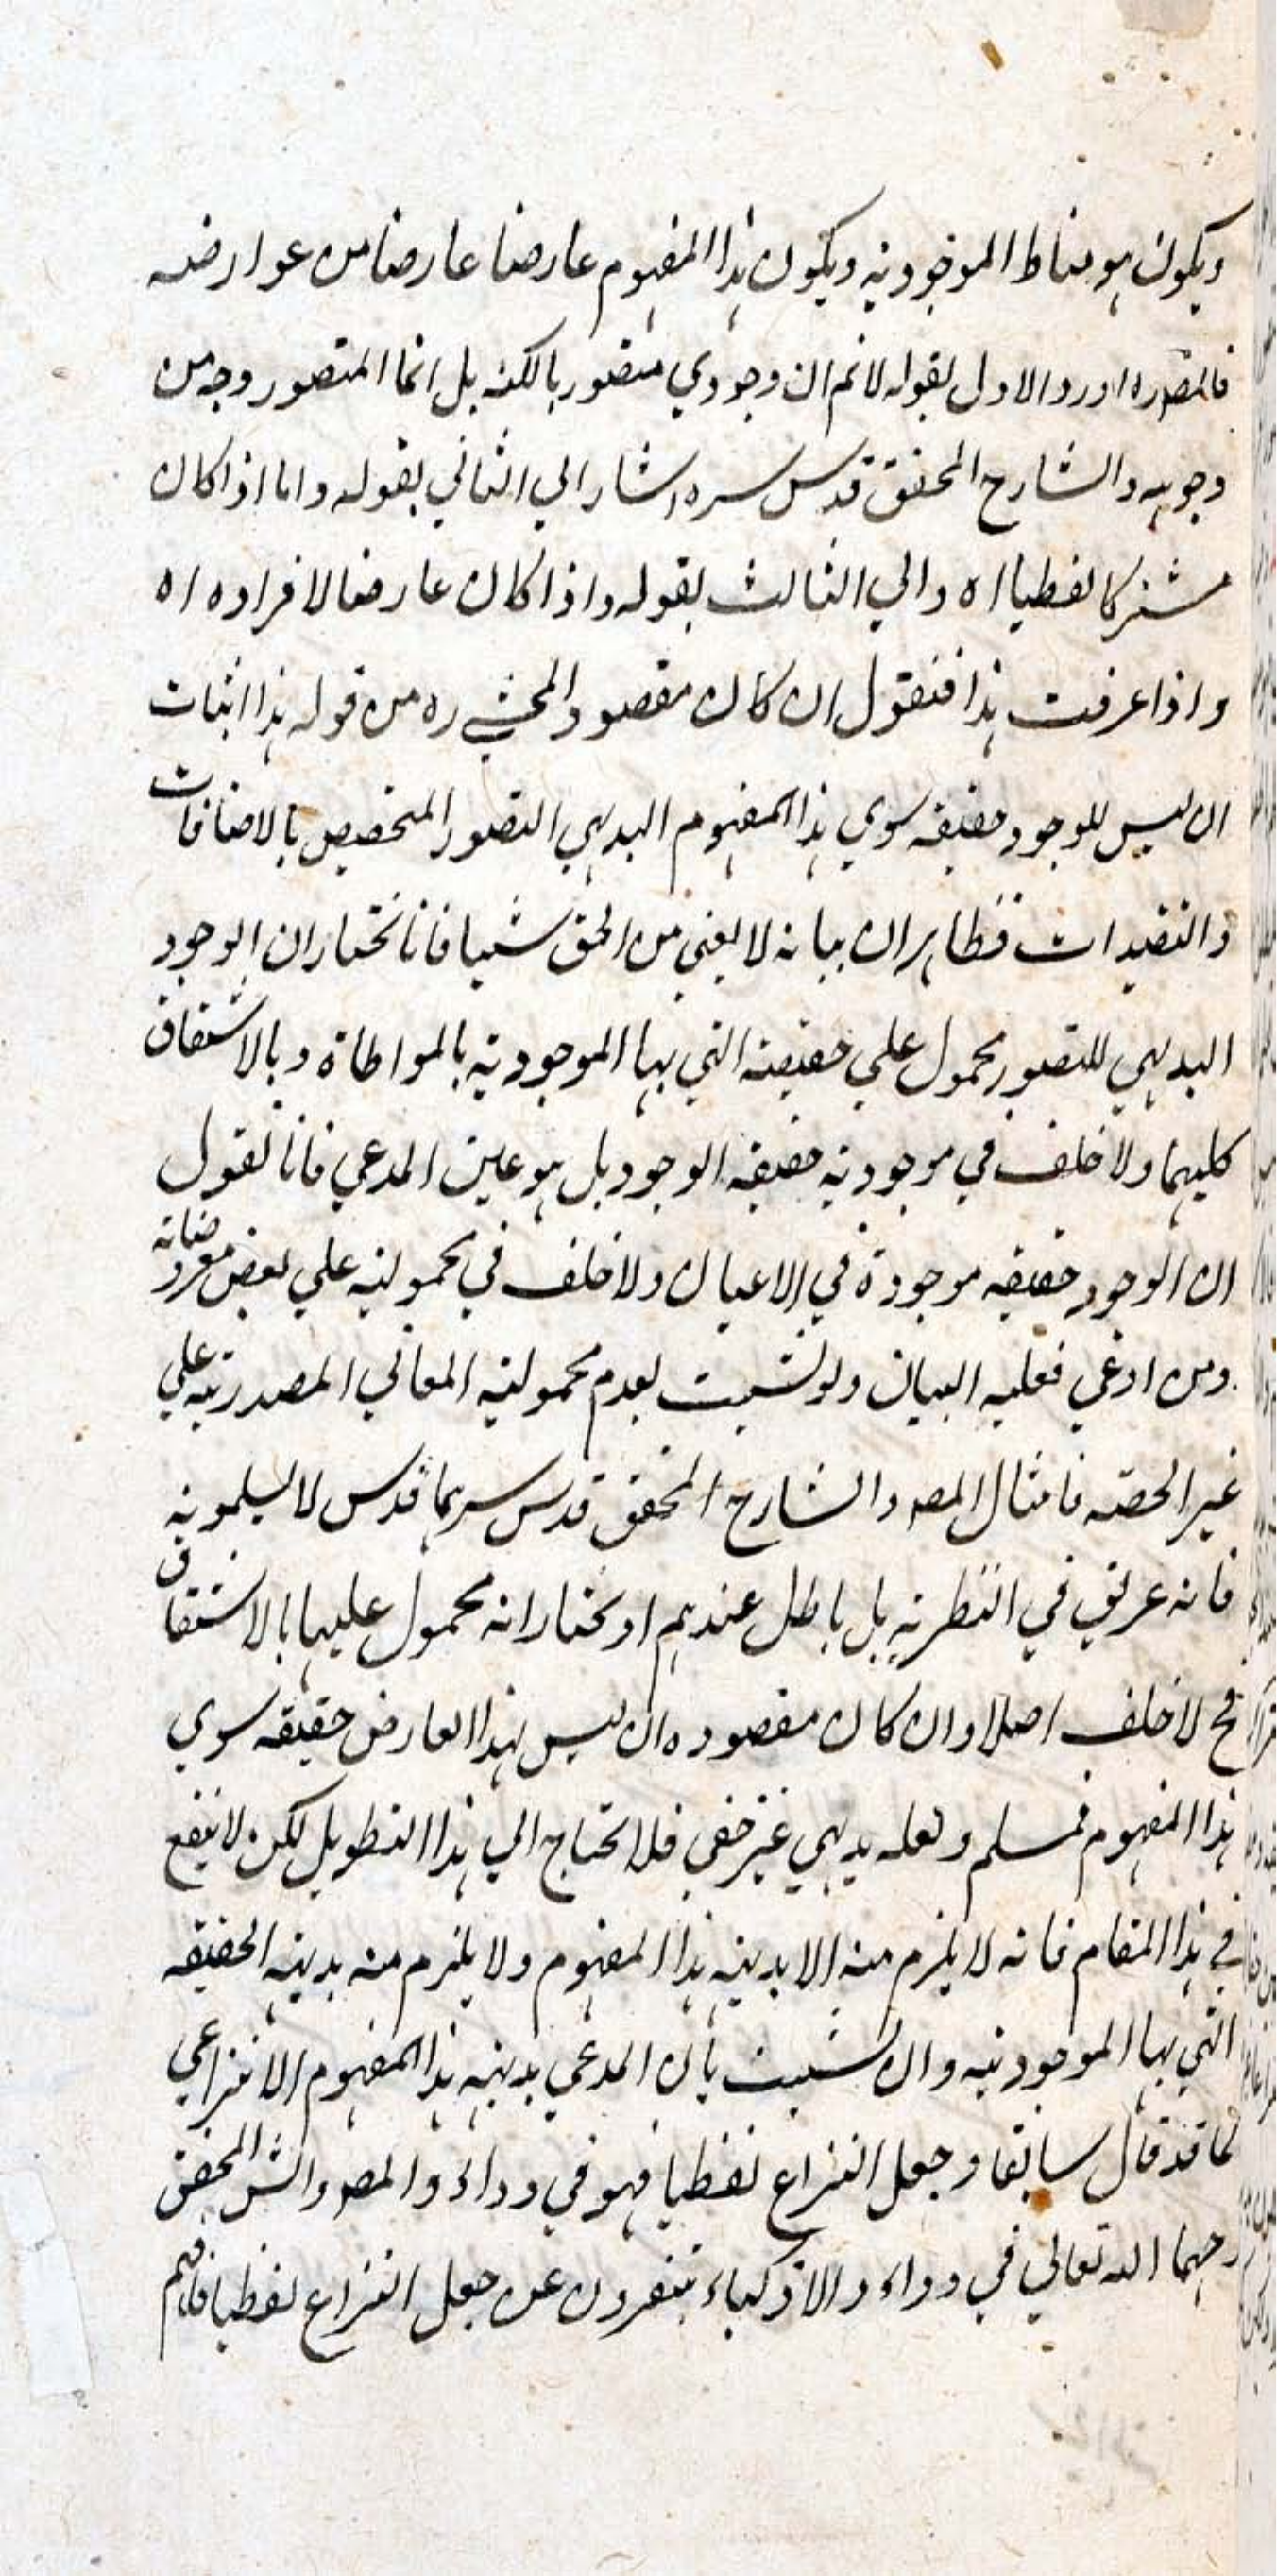 ويكون هو مناط الموجودية ويكون هذا المفهوم عارضا عارضا من عوارضه
فالمصره اورد الاول بقوله لانم ان وجودي متصور بالكنه بل انما المتصور وجه من
وجوهه والشارح المحقق قدس سره اشار الي الثاني بقوله واما اذا كان
مشتركا لفظيا اه والي الثالث بقوله واذا كان عارضا لافراده اه
واذا عرفت هذا فنقول ان كان مقصود المحشي ره من قوله هذا اثبات
ان ليس للوجود حقيقه سوي هذا المفهوم البديهي التصور المتخصص بالاضافات
والتقيدات فظاهر ان بيانه لا يغني من الحق شيا فانا نختار ان الوجود
البديهي للتصور محمول علي حقيقته التي بها الموجودية بالمواطاة وبالاشتقاق
كليهما ولا خلف في موجودية حقيقه الوجود بل هو عين المدعي فانا نقول
ان الوجود حقيقه موجودة في الاعيان ولا خلف في محموليته علي بعض معروضاته
ومن ادعي فعليه البيان ولو تشبت بعدم محمولية المعاني المصدريه علي
غير الحصه فامثال المصه والشارح المحقق قدس سرهما قدس لا يسلمونه
فانه عريق في النظرية بل باطل عندهم او نختار انه محمول عليها بالاشتقاق
فح لا خلف اصلا وان كان مقصوده ان ليس لهذا العارض حقيقه سوي
هذا المفهوم فمسلم ولعله بديهي غير خفي فلا تحتاج الي هذا التطويل لكن لا ينفع
في هذا المقام فانه لا يلزم منه الا بديهة هذا المفهوم ولا يلزم منه بديهة الحقيقه
التي بها الموجودية وان تشبت بان المدعي بديهة هذا المفهوم الانتزاعي
كما قد قال سابقا وجعل النزاع لفظيا فهو في وداد والمصه والش المحقق
رحهما الله تعالي في وداء والاذكياء يتنفرون عن جعل النزاع لفظيا فافهم